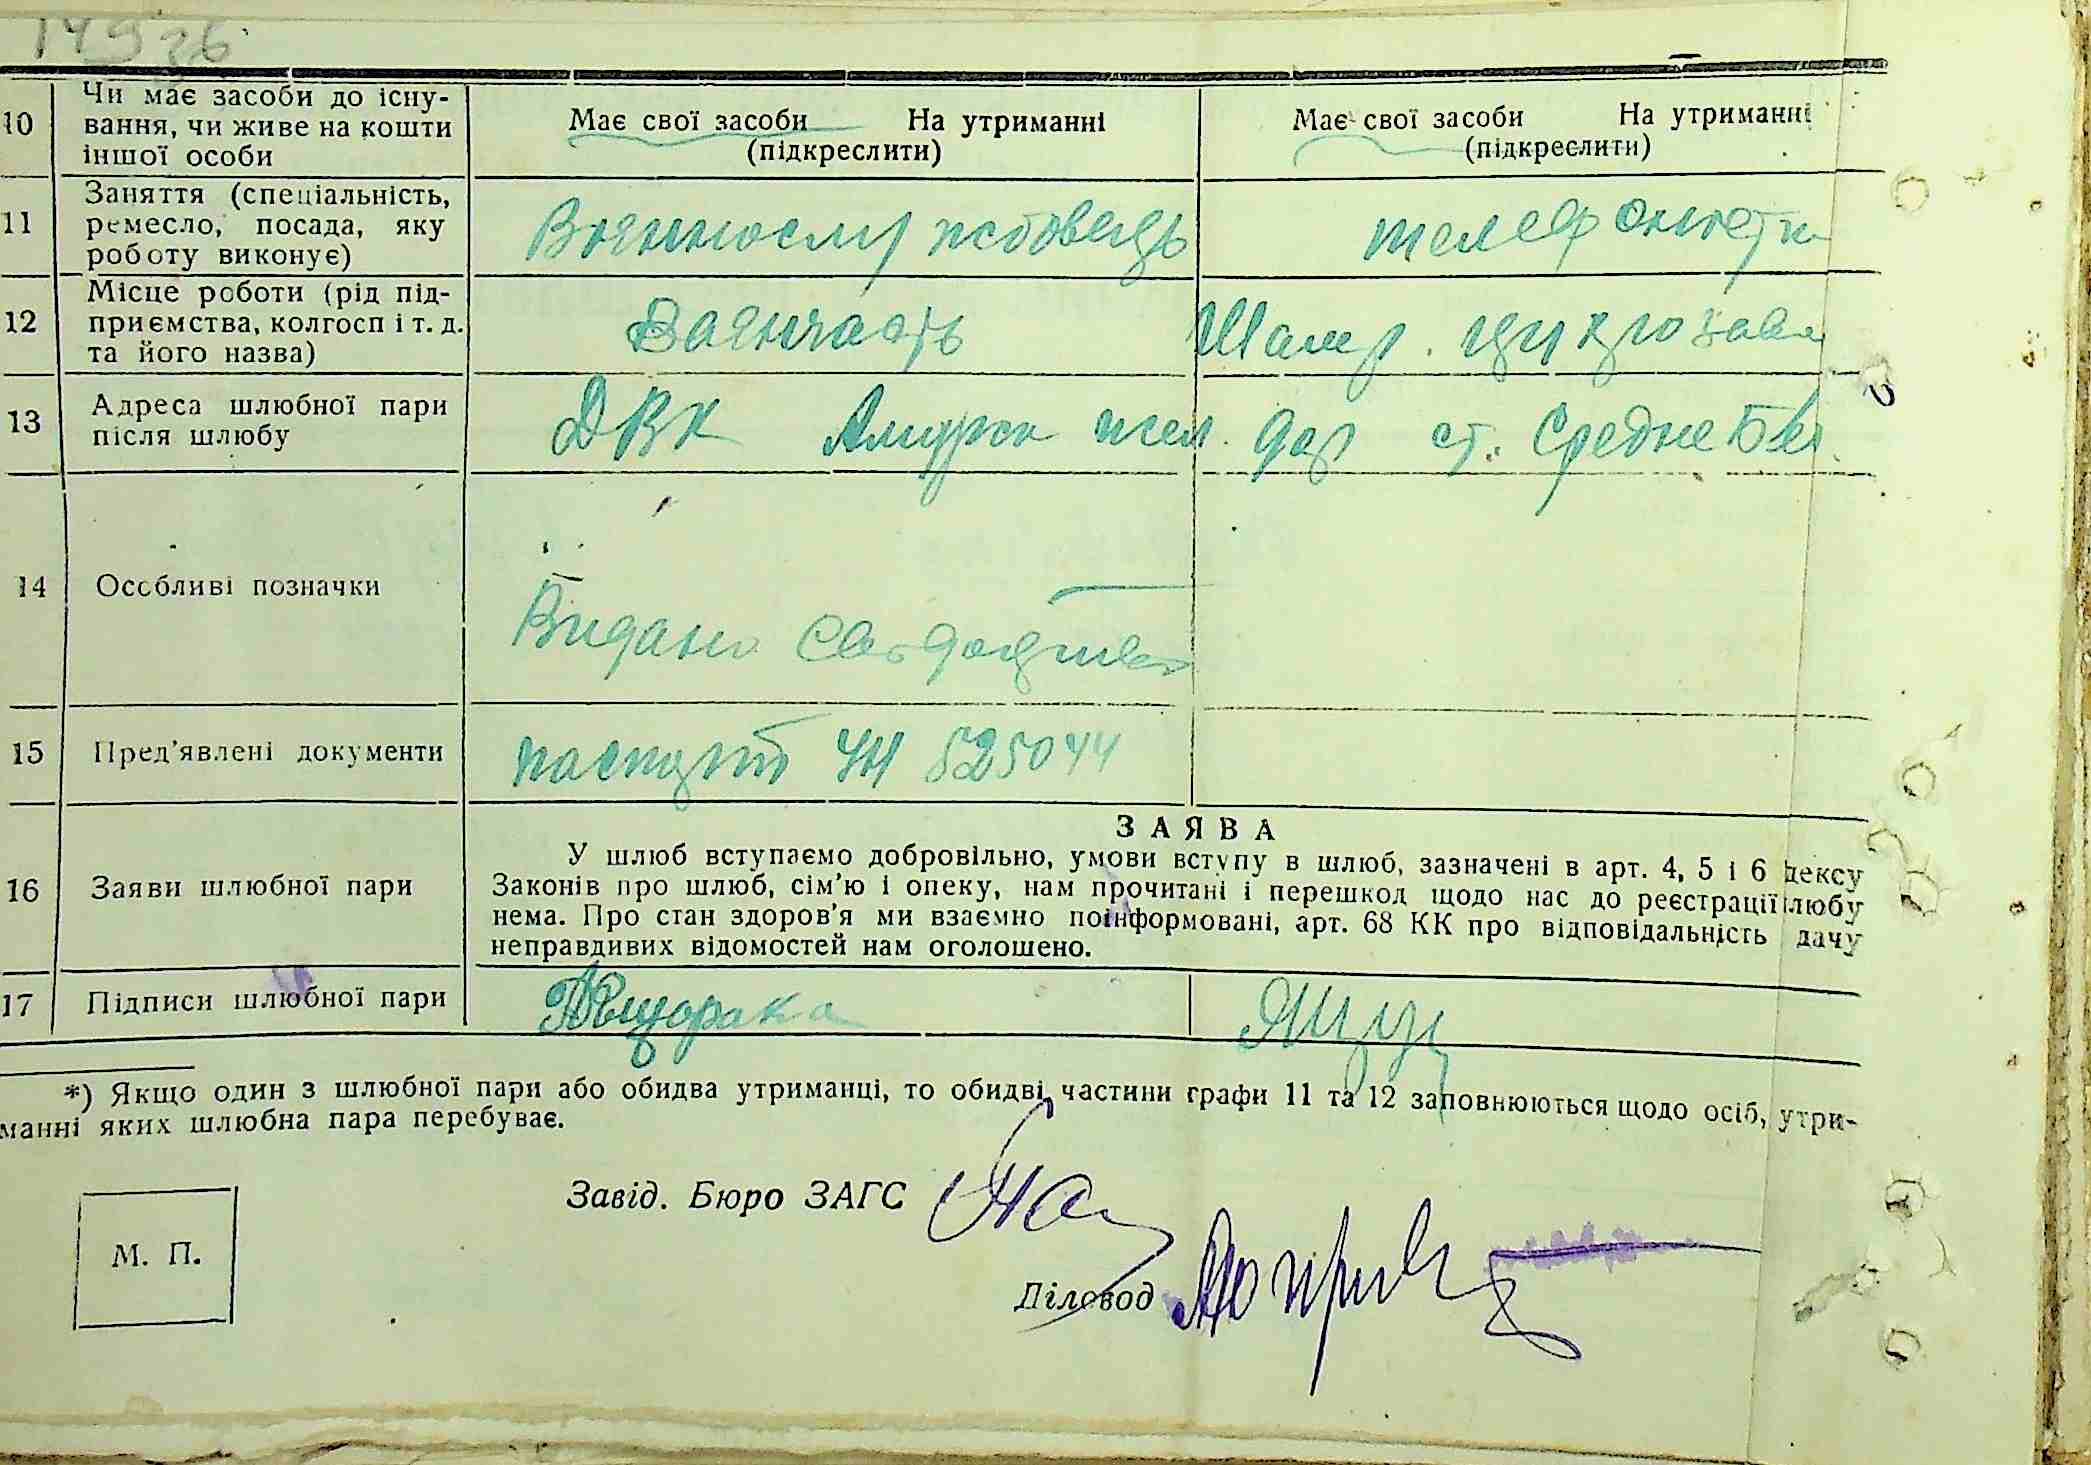 14926
10
Чи має засоби до існу-
вання, чи живе на кошти
іншої особи
Має свої засоби На утриманні
(підкреслити)
Має свої засоби На утриманні
(підкреслити)
11
Заняття (спеціальність,
ремесло, посада, яку
роботу виконує)
Военнослужбовець
телефонистка
12
Місце роботи (рід під-
приємства, колгосп і т. д.
та його назва)
Воєнчасть
Шамр. цукрозавод
13
Адреса шлюбної пари
після шлюбу
ДВК Амурск жел. дор ст. Средне Бел.
14
Особливі позначки
Видано
15
Пред'явлені документи
паспорт ЧН 525044
16
Заяви шлюбної пари
ЗАЯВА
У шлюб вступаємо добровільно, умови вступу в шлюб, зазначені в арт. 4, 5 і 6 дексу
Законів про шлюб, сім'ю і опеку, нам прочитані і перешкод щодо нас до реєстрації любу
нема. Про стан здоров'я ми взаємно поінформовані, арт. 68 КК про відповідальність дачу
неправдивих відомостей нам оголошено.
17
Підписи шлюбної пари
*) Якщо один з шлюбної пари або обидва утриманці, то обидві частини графи 11 та 12 заповнюються щодо осіб, утри-
манні яких шлюбна пара перебуває.
Завід. Бюро ЗАГС
М. П.
Діловод